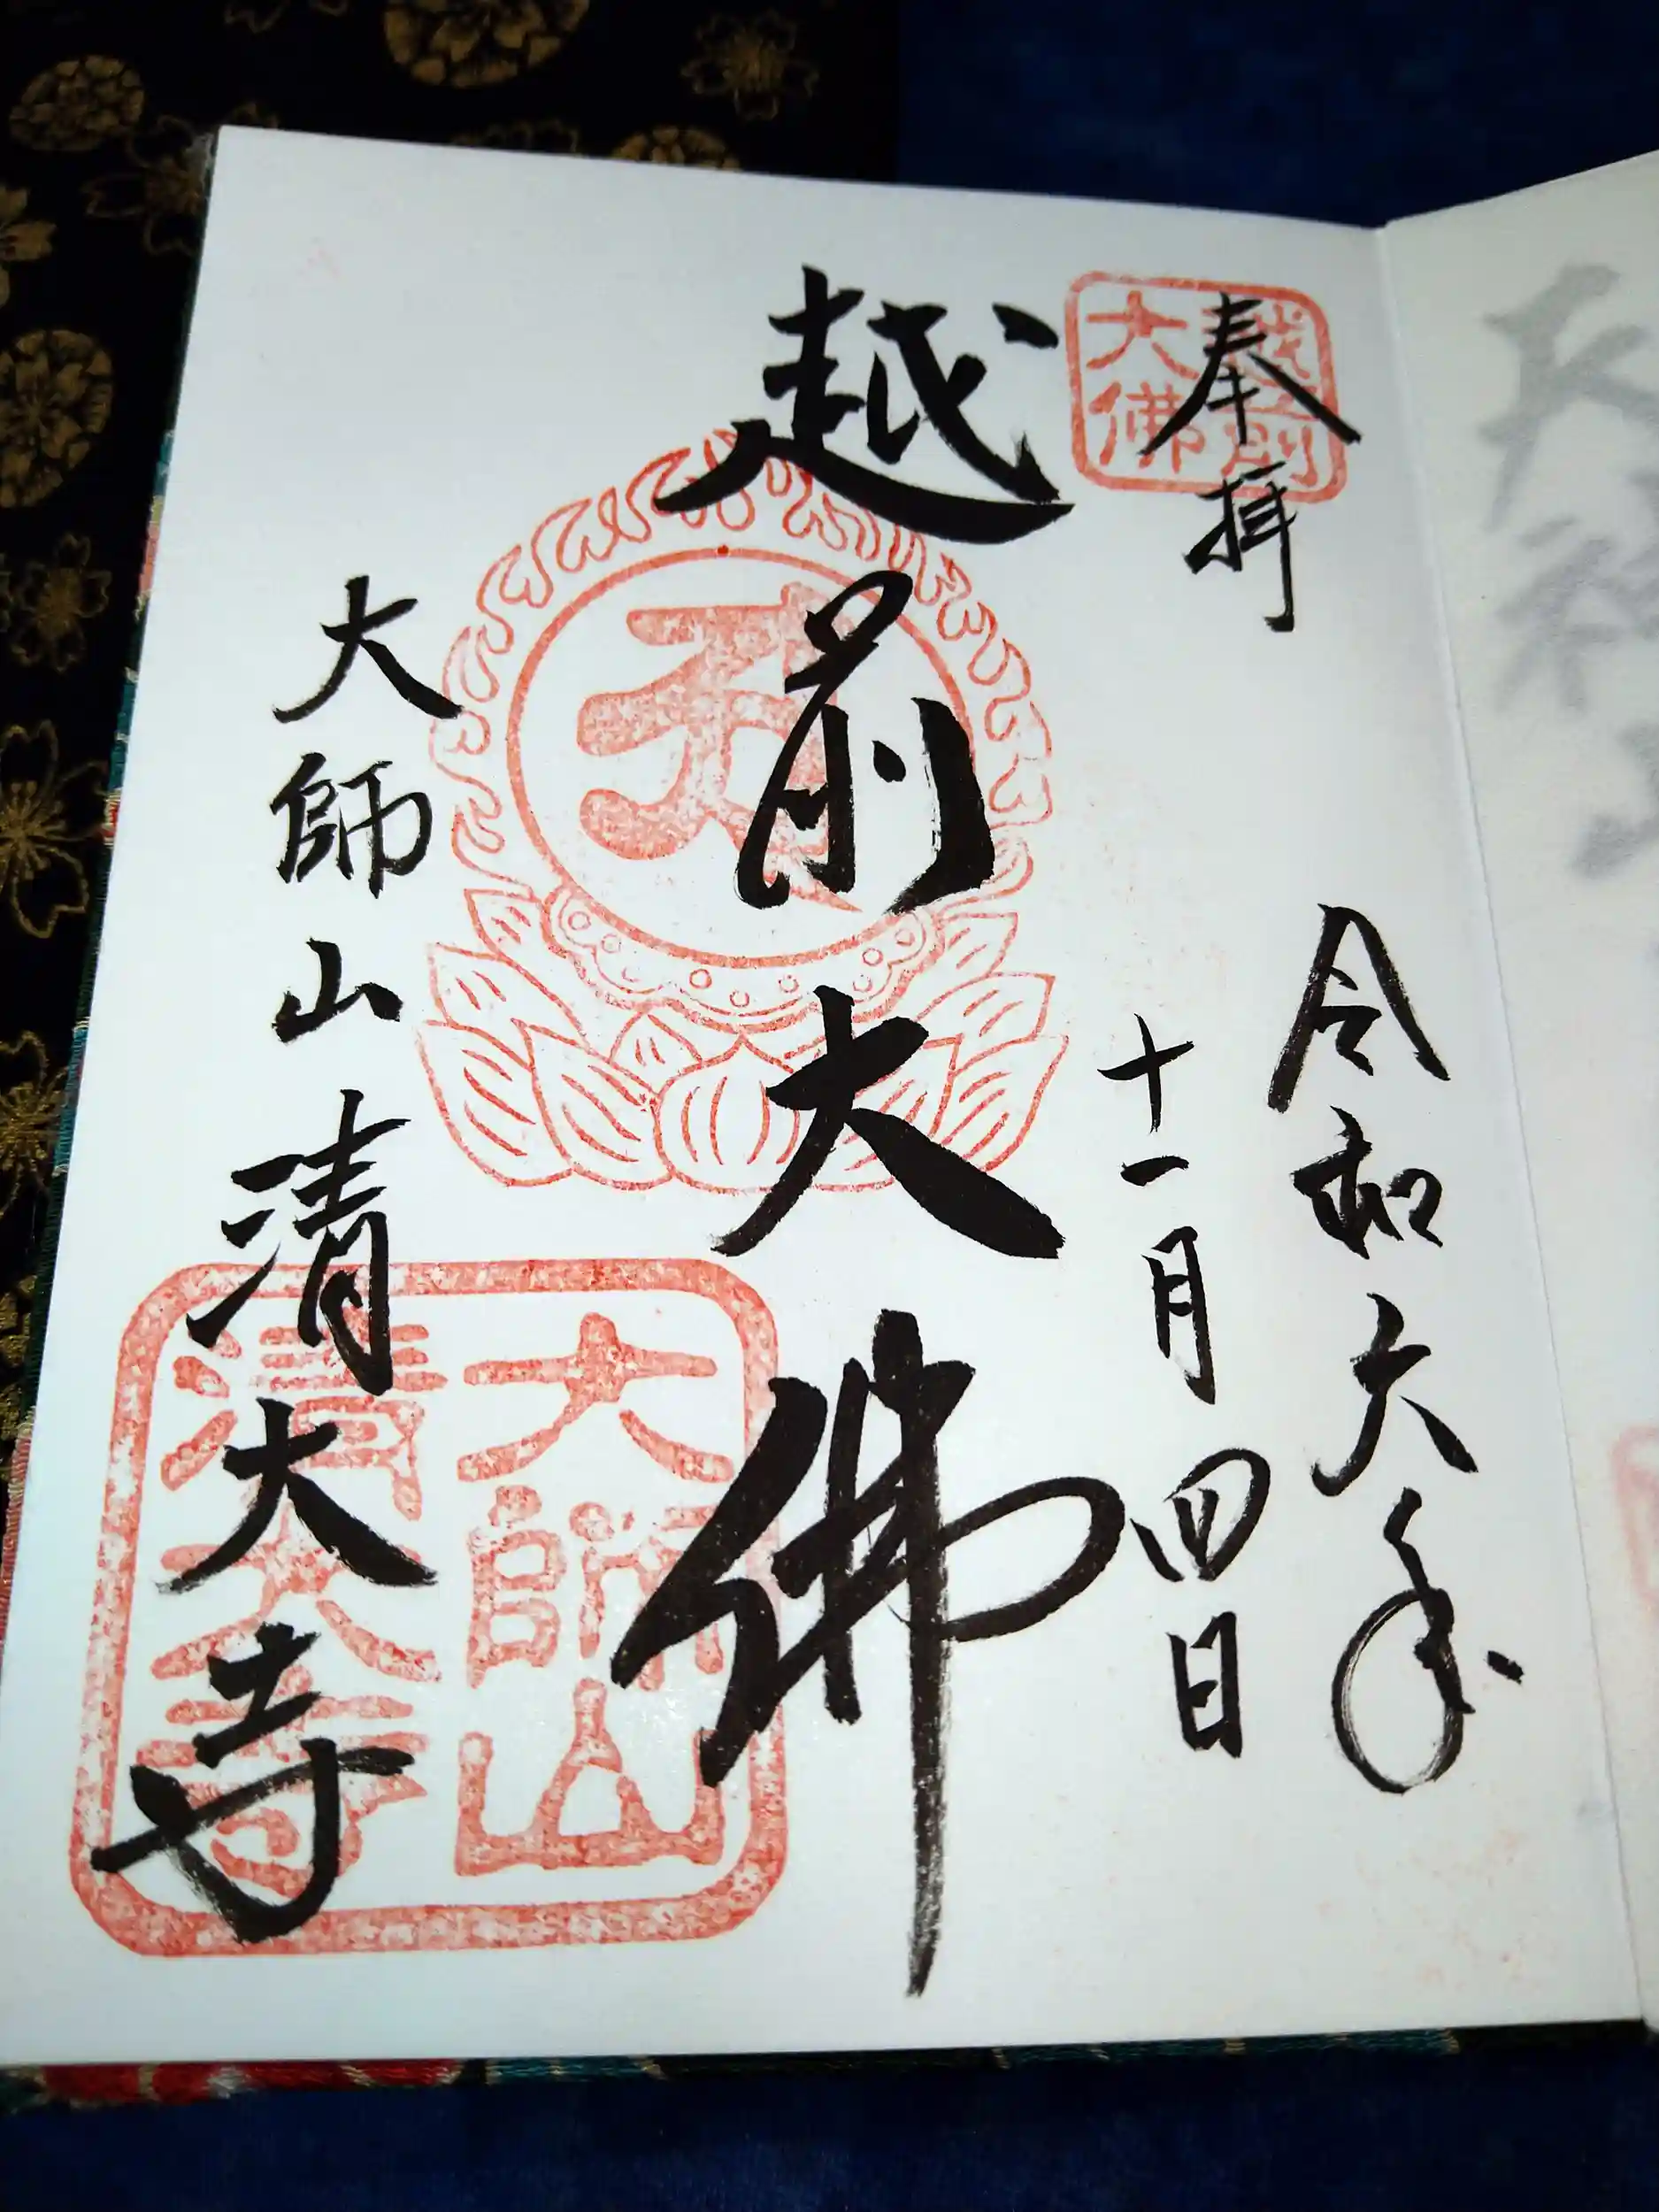 奉拝
令和六年
十一月四日
越前大佛
大師山清大寺
越前
大佛
大師山
清大寺